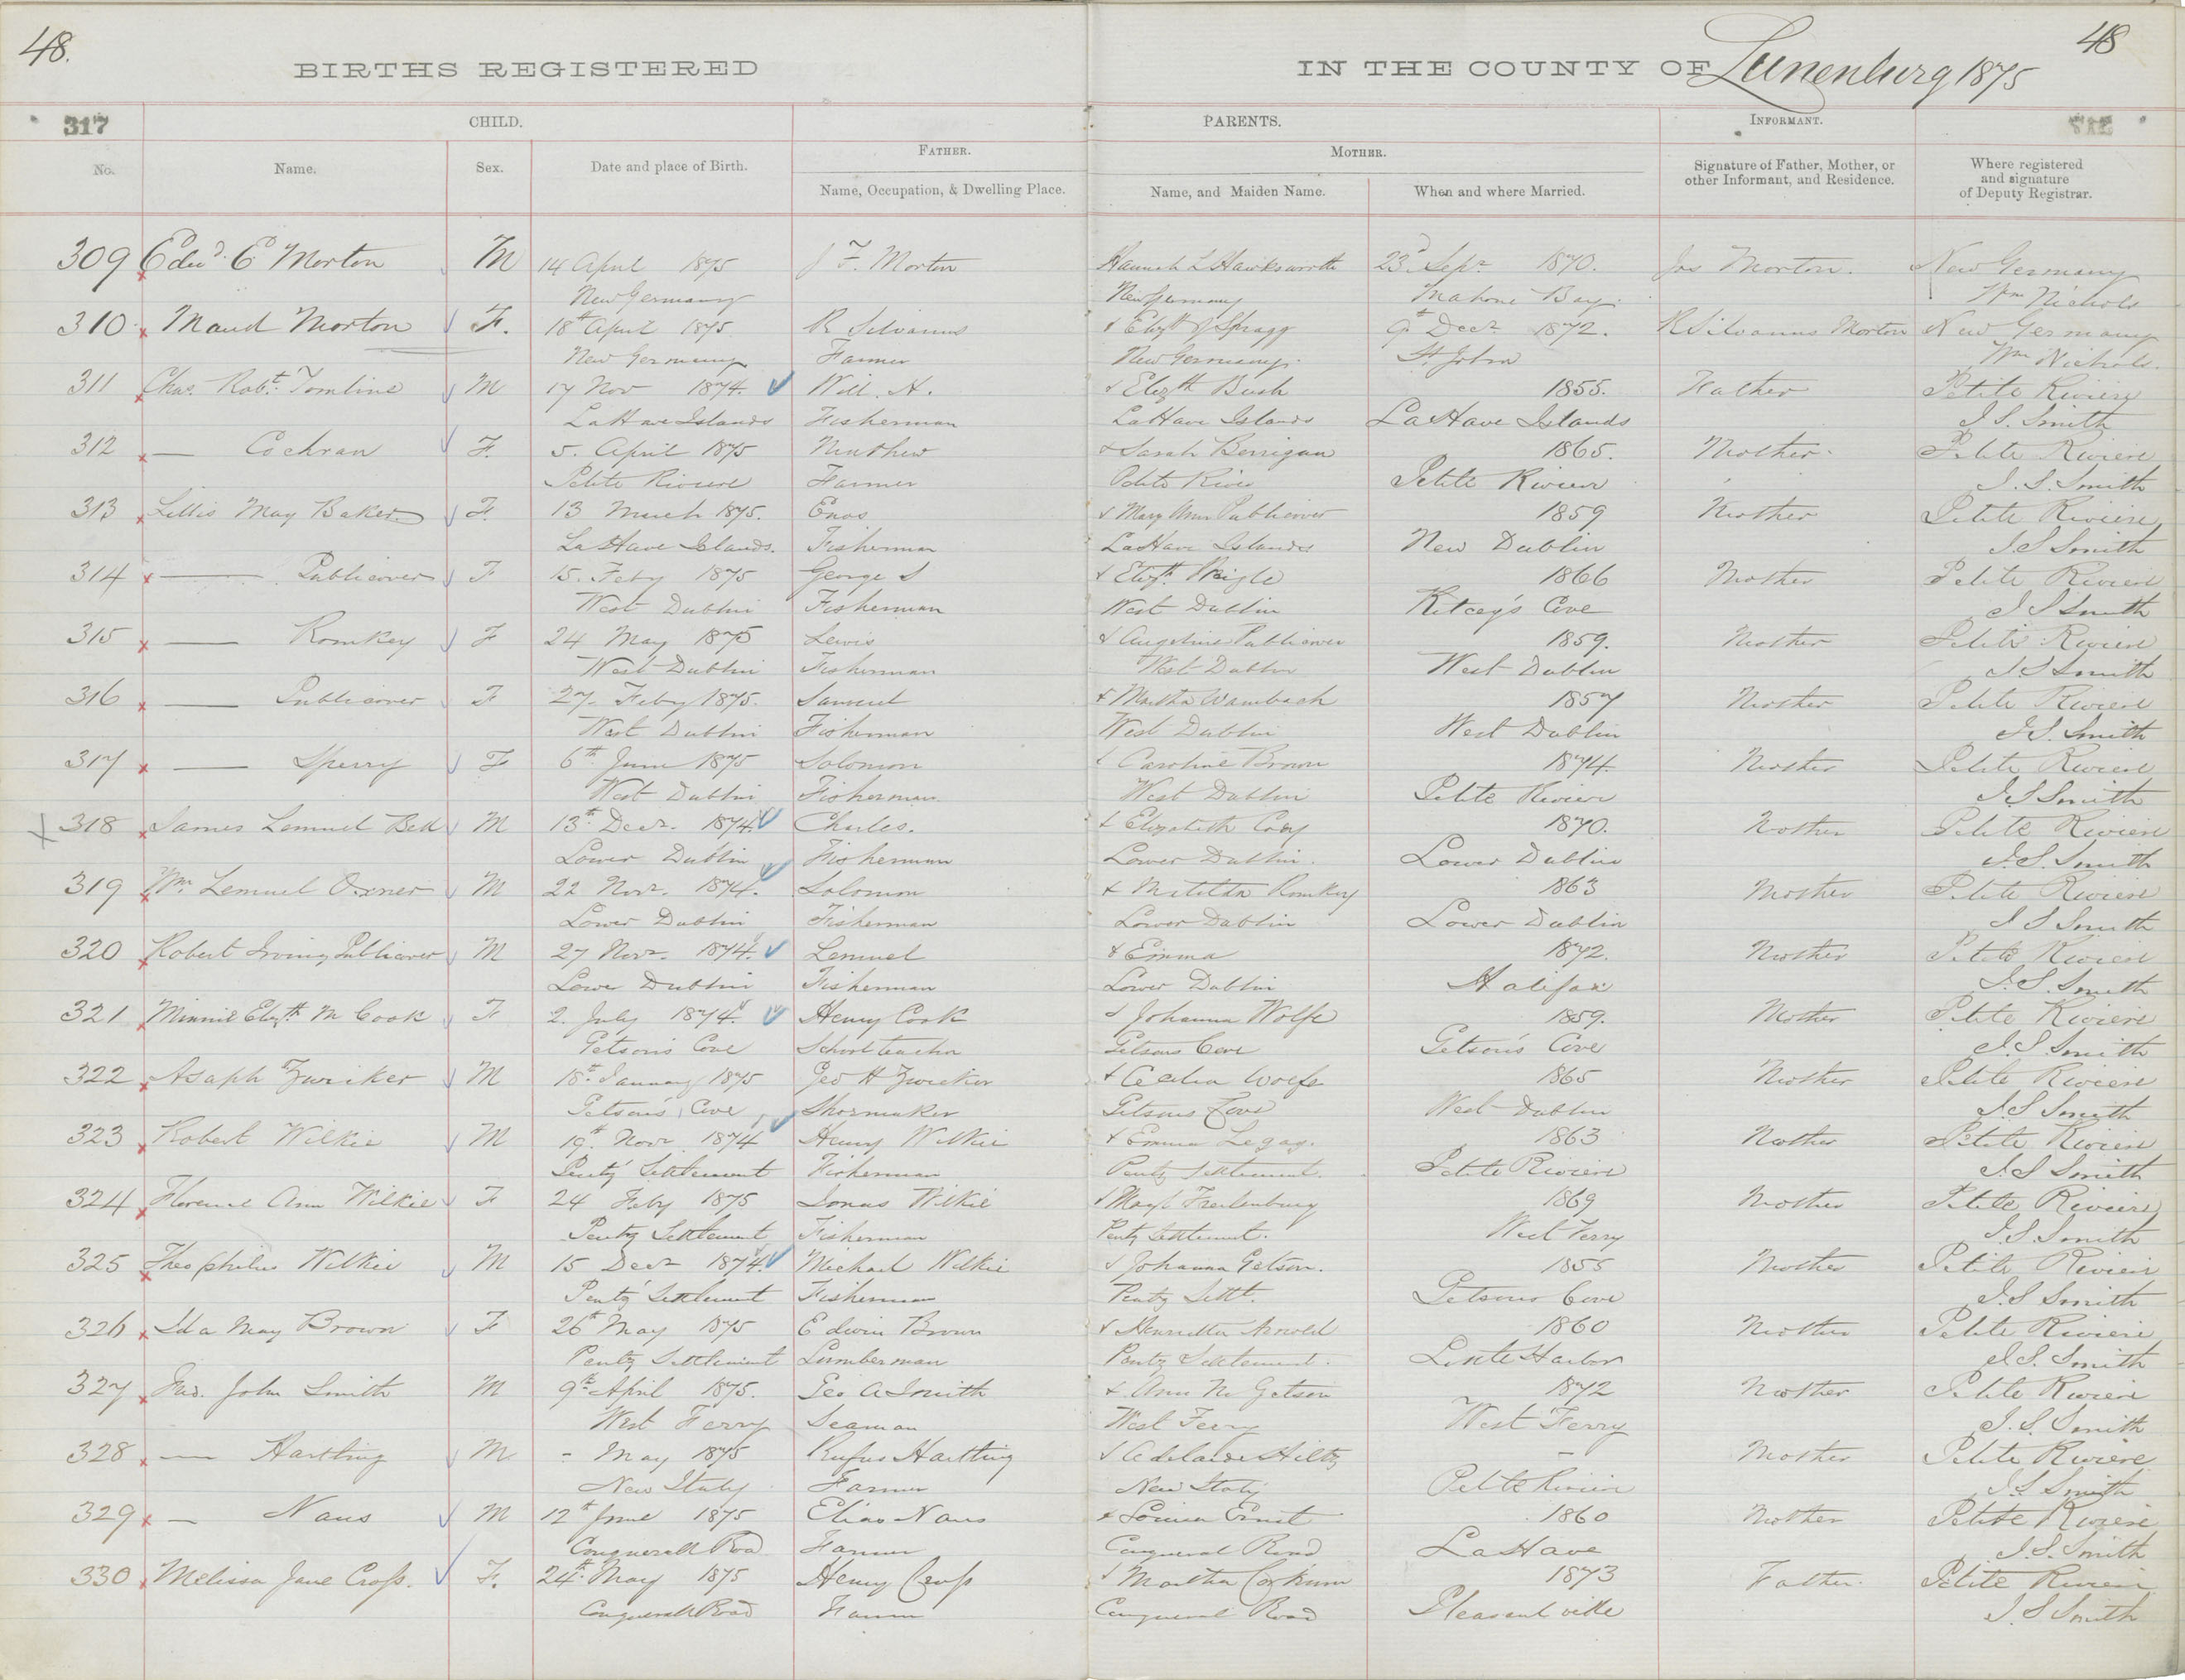 48. 48
BIRTHS REGISTERED IN THE COUNTY OF Lunenburg 1875
317 CHILD. PARENTS. INFORMANT. 317
FATHER. MOTHER.
No. Name. Sex. Date and place of Birth. Name, Occupation, & Dwelling Place. Name, and Maiden Name. When and where Married. Signature of Father, Mother, or other Informant, and Residence. Where registered and signature of Deputy Registrar.
309 Edwd. E Morton M 14 April 1875 J F. Morton Hannah L Hawksworth 23d. Sepr 1870. Jos Morton. New Germany
New Germany New Germany Mahone Bay. Wm Nichols
310 Maud Morton F. 18th April 1875 R Silvanus & Elizth J Spragg 9th Decr 1872. R Silvanus Morton New Germany
New Germany Farmer New Germany. St John Wm Nichols.
311 Chas. Robt. Tomline M 17 Nov 1874. Will. H. & Elizth Bush 1855. Father Petite Riviere
LaHave Islands Fisherman LaHave Islands LaHave Islands J S. Smith
312 — Cochran F. 5. April 1875 Mathew & Sarah Berrigan 1865. Mother. Petite Riviere
Petite Riviere Farmer Petite River Petite Riviere J. S. Smith
313 Lillis May Baker F. 13 March 1875. Enos & Mary Ann Publicover 1859 Mother Petite Riviere
LaHave Islands. Fisherman LaHave Islands New Dublin J. S Smith
314 — Publicover F 15. Feby 1875 George S & Elizth. 1866 Mother Petite Riviere
West Dublin Fisherman West Dublin Ritcey's Cove J S Smith
315 — Romkey F 24 May 1875 Lewis & Augstine Publicover 1859. Mother Petite Riviere
West Dublin Fisherman West Dublin West Dublin J S Smith
316 — Publicover F 27 Feby 1875. Samuel & Martha Wambach 1857 Mother Petite Riviere
West Dublin Fisherman West Dublin West Dublin J S. Smith
317 — Sperry F 6th June 1875 Solomon & Caroline Brown 1874. Mother Petite Riviere
West Dublin Fisherman. West Dublin Petite Riviere J. S Smith
318 James Lemuel Bell M 13th. Decr. 1874 Charles. & Elizabeth 1870. Mother Petite Riviere
Lower Dublin Fisherman Lower Dublin. Lower Dublin J. S. Smith
319 Wm Lemuel Oxner M 22 Novr. 1874. Solomon & Matilda Romkey 1863 Mother Petite Riviere
Lower Dublin Fisherman Lower Dublin Lower Dublin J S Smith
320 Robert Irving Publicover M 27 Novr. 1874. Lemuel & Emma 1872. Mother Petite Riviere
Lower Dublin Fisherman Lower Dublin Halifax J. S. Smith
321 Minnie Elizth M Cook F 2. July 1874. Henry Cook & Johanna Wolfe 1859. Mother Petite Riviere
Getson's Cove School teacher Getsons Cove Getson's Cove J. S Smith
322 Asaph Zwicker M 18th. January 1875 Geo H Zwicker & Cecilia Wolfe 1865 Mother Petite Riviere
Getson's Cove Shoemaker Getsons Cove West Dublin J. S Smith
323 Robert Wilkie M 19th. Novr 1874 Henry Wilkie & Emma Legay. 1863 Mother Petite Riviere
Pentz Settlement Fisherman Pentz Settlement. Petite Riviere J. S Smith
324 Florence Ann Wilkie F 24 Feby 1875 Jonas Wilkie & Frelenburg 1869 Mother Petite Riviere
Pentz Settlement Fisherman Pentz Settlement. West Ferry J S. Smith
325 Theophilus Wilkie M 15 Decr 1874 Michael Wilkie & Johanna Getson. 1855 Mother Petite Riviere
Pentz Settlement Fisherman Pentz Settt. Getsons Cove J. S Smith
326 Ida May Brown F 26th May 1875 Edwin Brown & Henrietta Arnold 1860 Mother Petite Riviere
Pentz Settlement Lumberman Pentz Settlement. Harbor J S. Smith
327 John Smith M 9th April 1875. Geo A Smith & Ann M Getson 1872 Mother Petite Riviere
West Ferry Seaman West Ferry West Ferry J. S. Smith
328 — Hartling M – May 1875 Rufus Hartling & Adelaide Hiltz – Mother Petite Riviere
New Italy Farmer New Italy Petite Riviere J. S Smith
329 — Naus M 12th June 1875 Elias Naus & Louisa Ernst 1860 Mother Petite Riviere
Conquerall Road Farmer Conquerall Road LaHave J. S. Smith
330 Melissa Jane Cross. F. 24th. May 1875 Henry Cross & Martha Corkum 1873 Father. Petite Riviere
Conquerall Road Farmer Conquerall Road Pleasantville J. S Smith